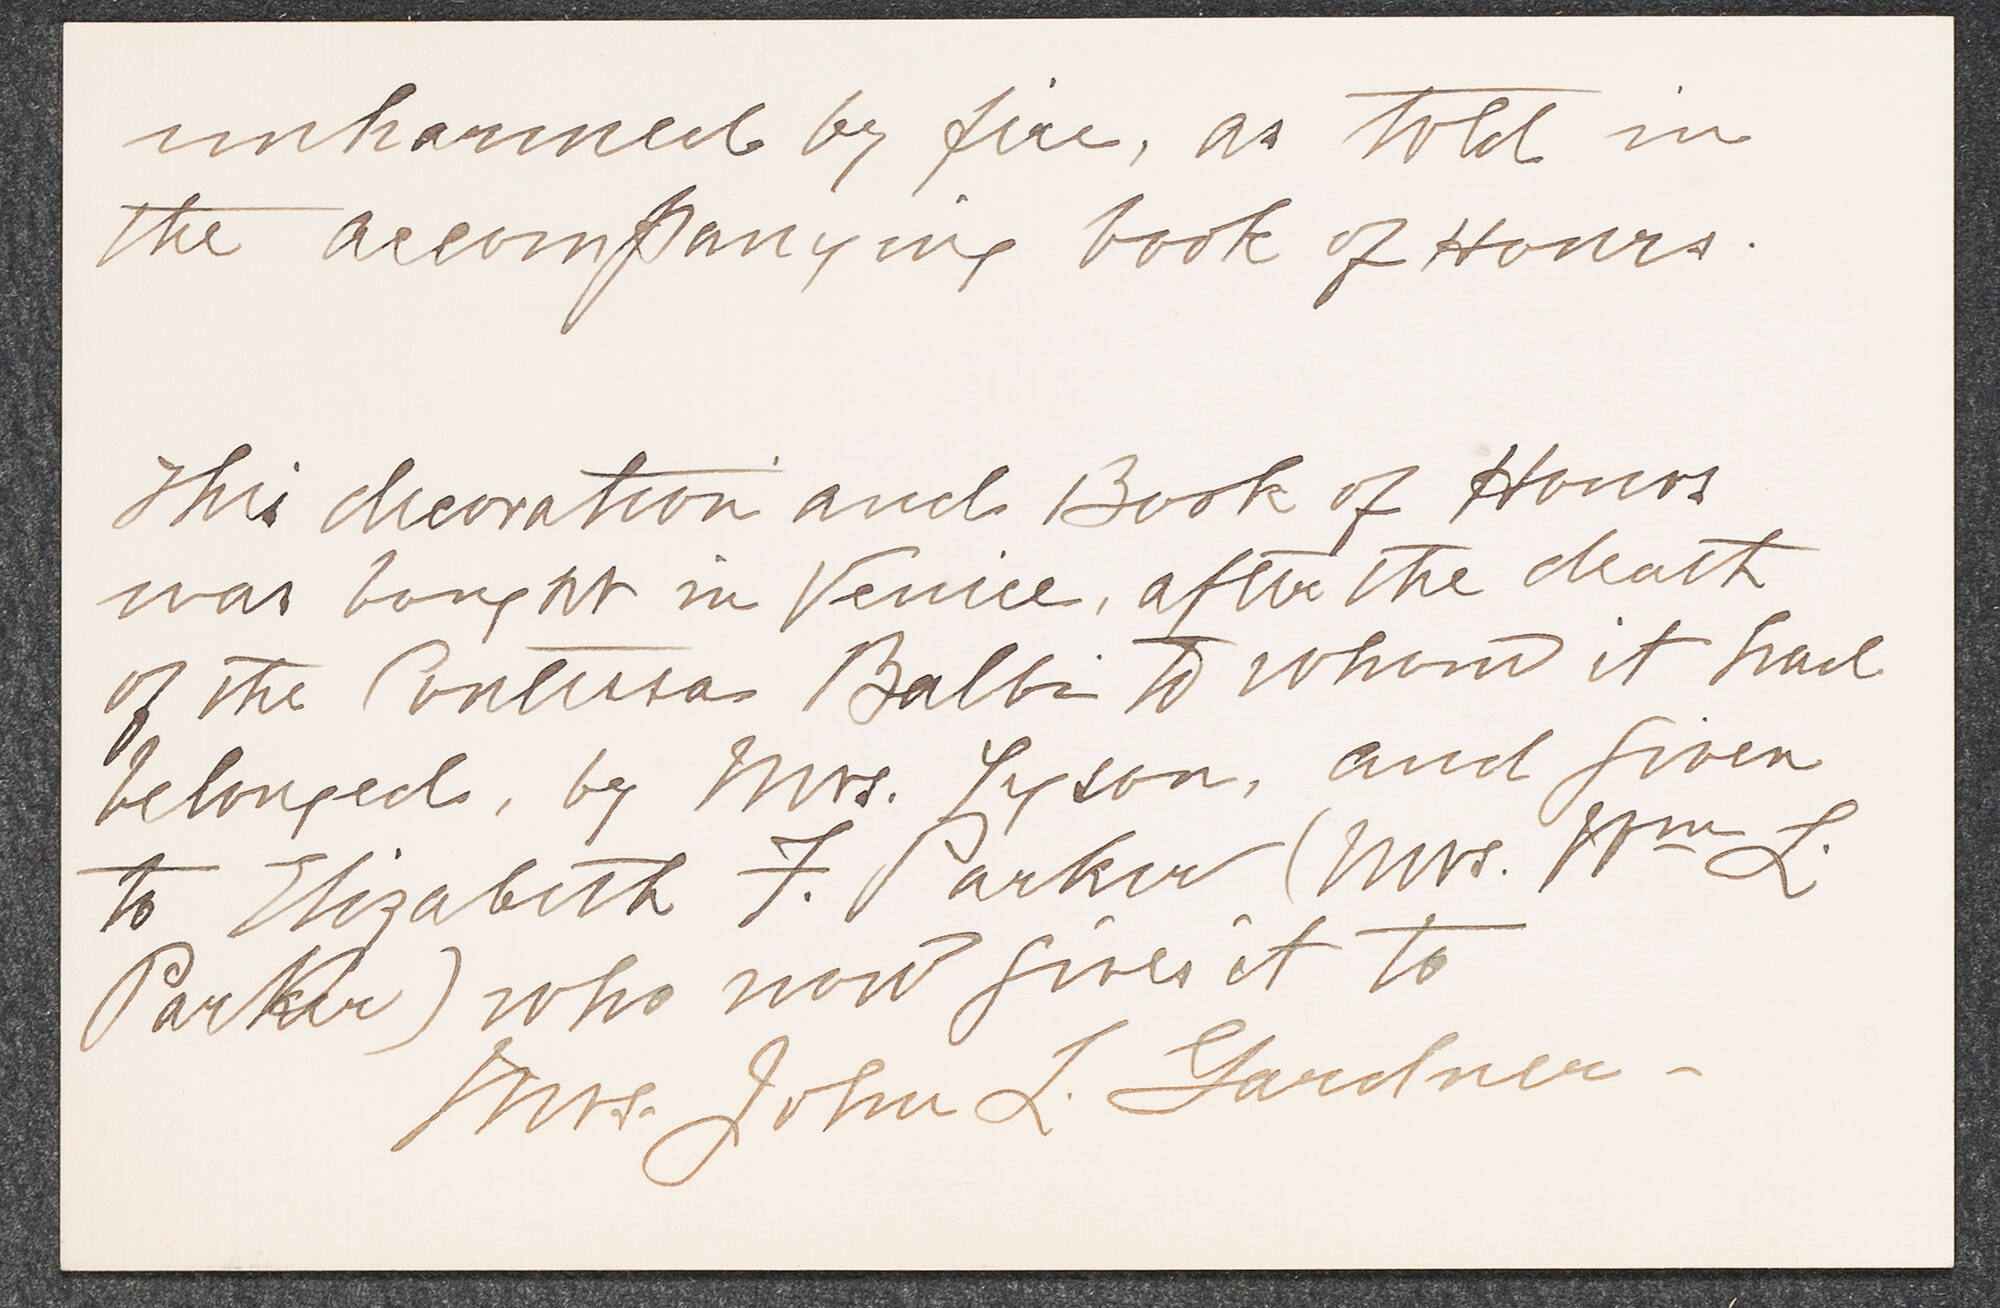 unharmed by fire, as told in
the accompanying book of Hours.
This decoration and Book of Hours
was bought in Venice, after the death
of the Contessa Balbi to whom it had
belonged, by Mrs. Tyson, and given
to Elizabeth F. Parker (Mrs. Wm L.
Parker) who now gives it to
Mrs. John L. Gardner -